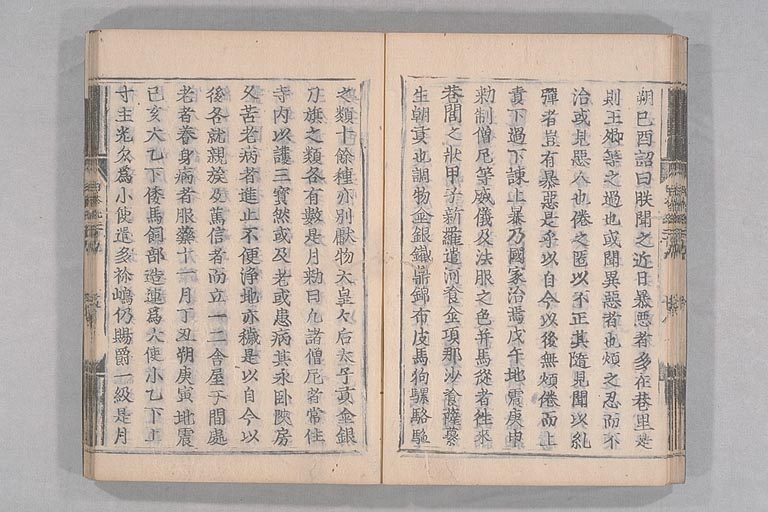 朔己酉詔曰朕聞之近日暴惡者多在巷里是
則王卿等之過也或聞異惡者也煩之忍而不
治或見惡人也倦之匿以不正其隨見聞以糺
彈者豈有暴惡是乎以自今以後無煩倦而上
責下過下諫上暴乃國家治焉戊午地震庚申
勅制僧尼等威儀及法服之色并馬從者徃來
巷閭之狀甲子新羅遣河飡金項那沙飡薩虆
生朝貢也調物金銀鐵鼎錦布皮馬狗騾駱駝
之類十餘種亦別獻物天皇々后太子貢金銀
刀旗之類各有數是月勅曰凢諸僧尼者常住
寺内以護三寶然或及老或患病其永卧陜房
久苦老病者進止不便浄地亦穢是以自今以
後各就親族及萬信者而立一二舍屋于間處
老者養身病者服藥十一月丁丑朔庚寅地震
己亥大乙下倭馬飼部造連爲大使小乙下上
寸主光父爲小使遣多祢嶋仍賜爵一級是月